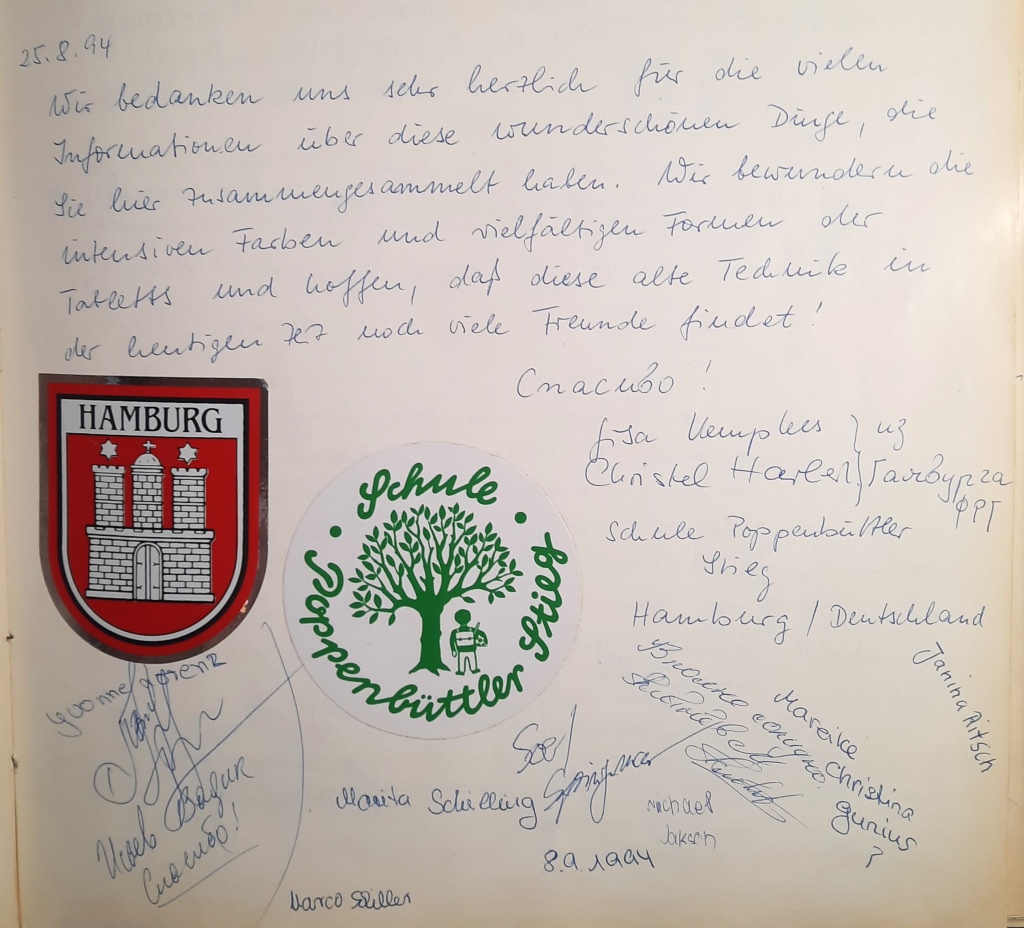 25.8.94
Wir bedanken uns sehr herzlich für die vielen
Informationen über diese wunderschönen Dinge, die
Sie hier zusammengesammelt haben. Wir bewundern die
intensiven Farben und vielfältigen Formen der
Tabletts und hoffen, daß diese alte Technik in
der heutigen Zeit noch viele Freunde findet!
Спасибо!
Christel
из
ФРГ
Schule Poppenbüttler
Stieg
Hamburg / Deutschland
HAMBURG
Schule
Poppenbüttler Stieg
Yvonne
Вадик
Спасибо!
Marita Schilling
8.9.1994
Michael
Mareike
Christina
?
Janina
Marco